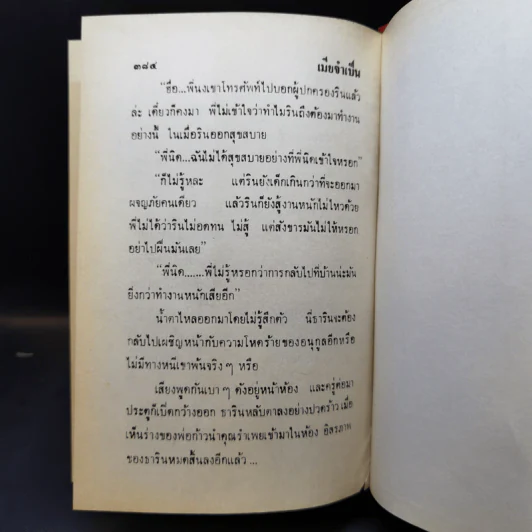 ๓๘๔ เมียจำเป็น
“ฮื่อ...พี่นงเขาโทรศัพท์ไปบอกผู้ปกครองรินแล้ว
ล่ะ เดี๋ยวก็คงมา พี่ไม่เข้าใจว่าทำไมรินถึงต้องมาทำงาน
อย่างนี้ ในเมื่อรินออกสุขสบาย
“พี่นิด...ฉันไม่ได้สุขสบายอย่างที่พี่นิดเข้าใจหรอก”
“ก็ไม่รู้หละ แต่รินยังเด็กเกินกว่าที่จะออกมา
ผจญภัยคนเดียว แล้วรินก็ยังสู้งานหนักไม่ไหวด้วย
พี่ไม่ได้ว่ารินไม่อดทน ไม่สู้ แต่สังขารมันไม่ให้หรอก
อย่าไปฝืนมันเลย”
“พี่นิด.......พี่ไม่รู้หรอกว่าการกลับไปที่บ้านน่ะมัน
ยิ่งกว่าทำงานหนักเสียอีก”
น้ำตาไหลออกมาโดยไม่รู้สึกตัว นี่ธารินจะต้อง
กลับไปเผชิญหน้ากับความโหดร้ายของอนุกูลอีกหรือ
ไม่มีทางหนีเขาพ้นจริง ๆ หรือ
เสียงพูดกันเบา ๆ ดังอยู่หน้าห้อง และครู่ต่อมา
ประตูก็เปิดกว้างออก ธารินหลับตาลงอย่างปวดร้าว เมื่อ
เห็นร่างของพ่อก้าวนำคุณรำเพยเข้ามาในห้อง อิสรภาพ
ของธารินหมดสิ้นลงอีกแล้ว ...